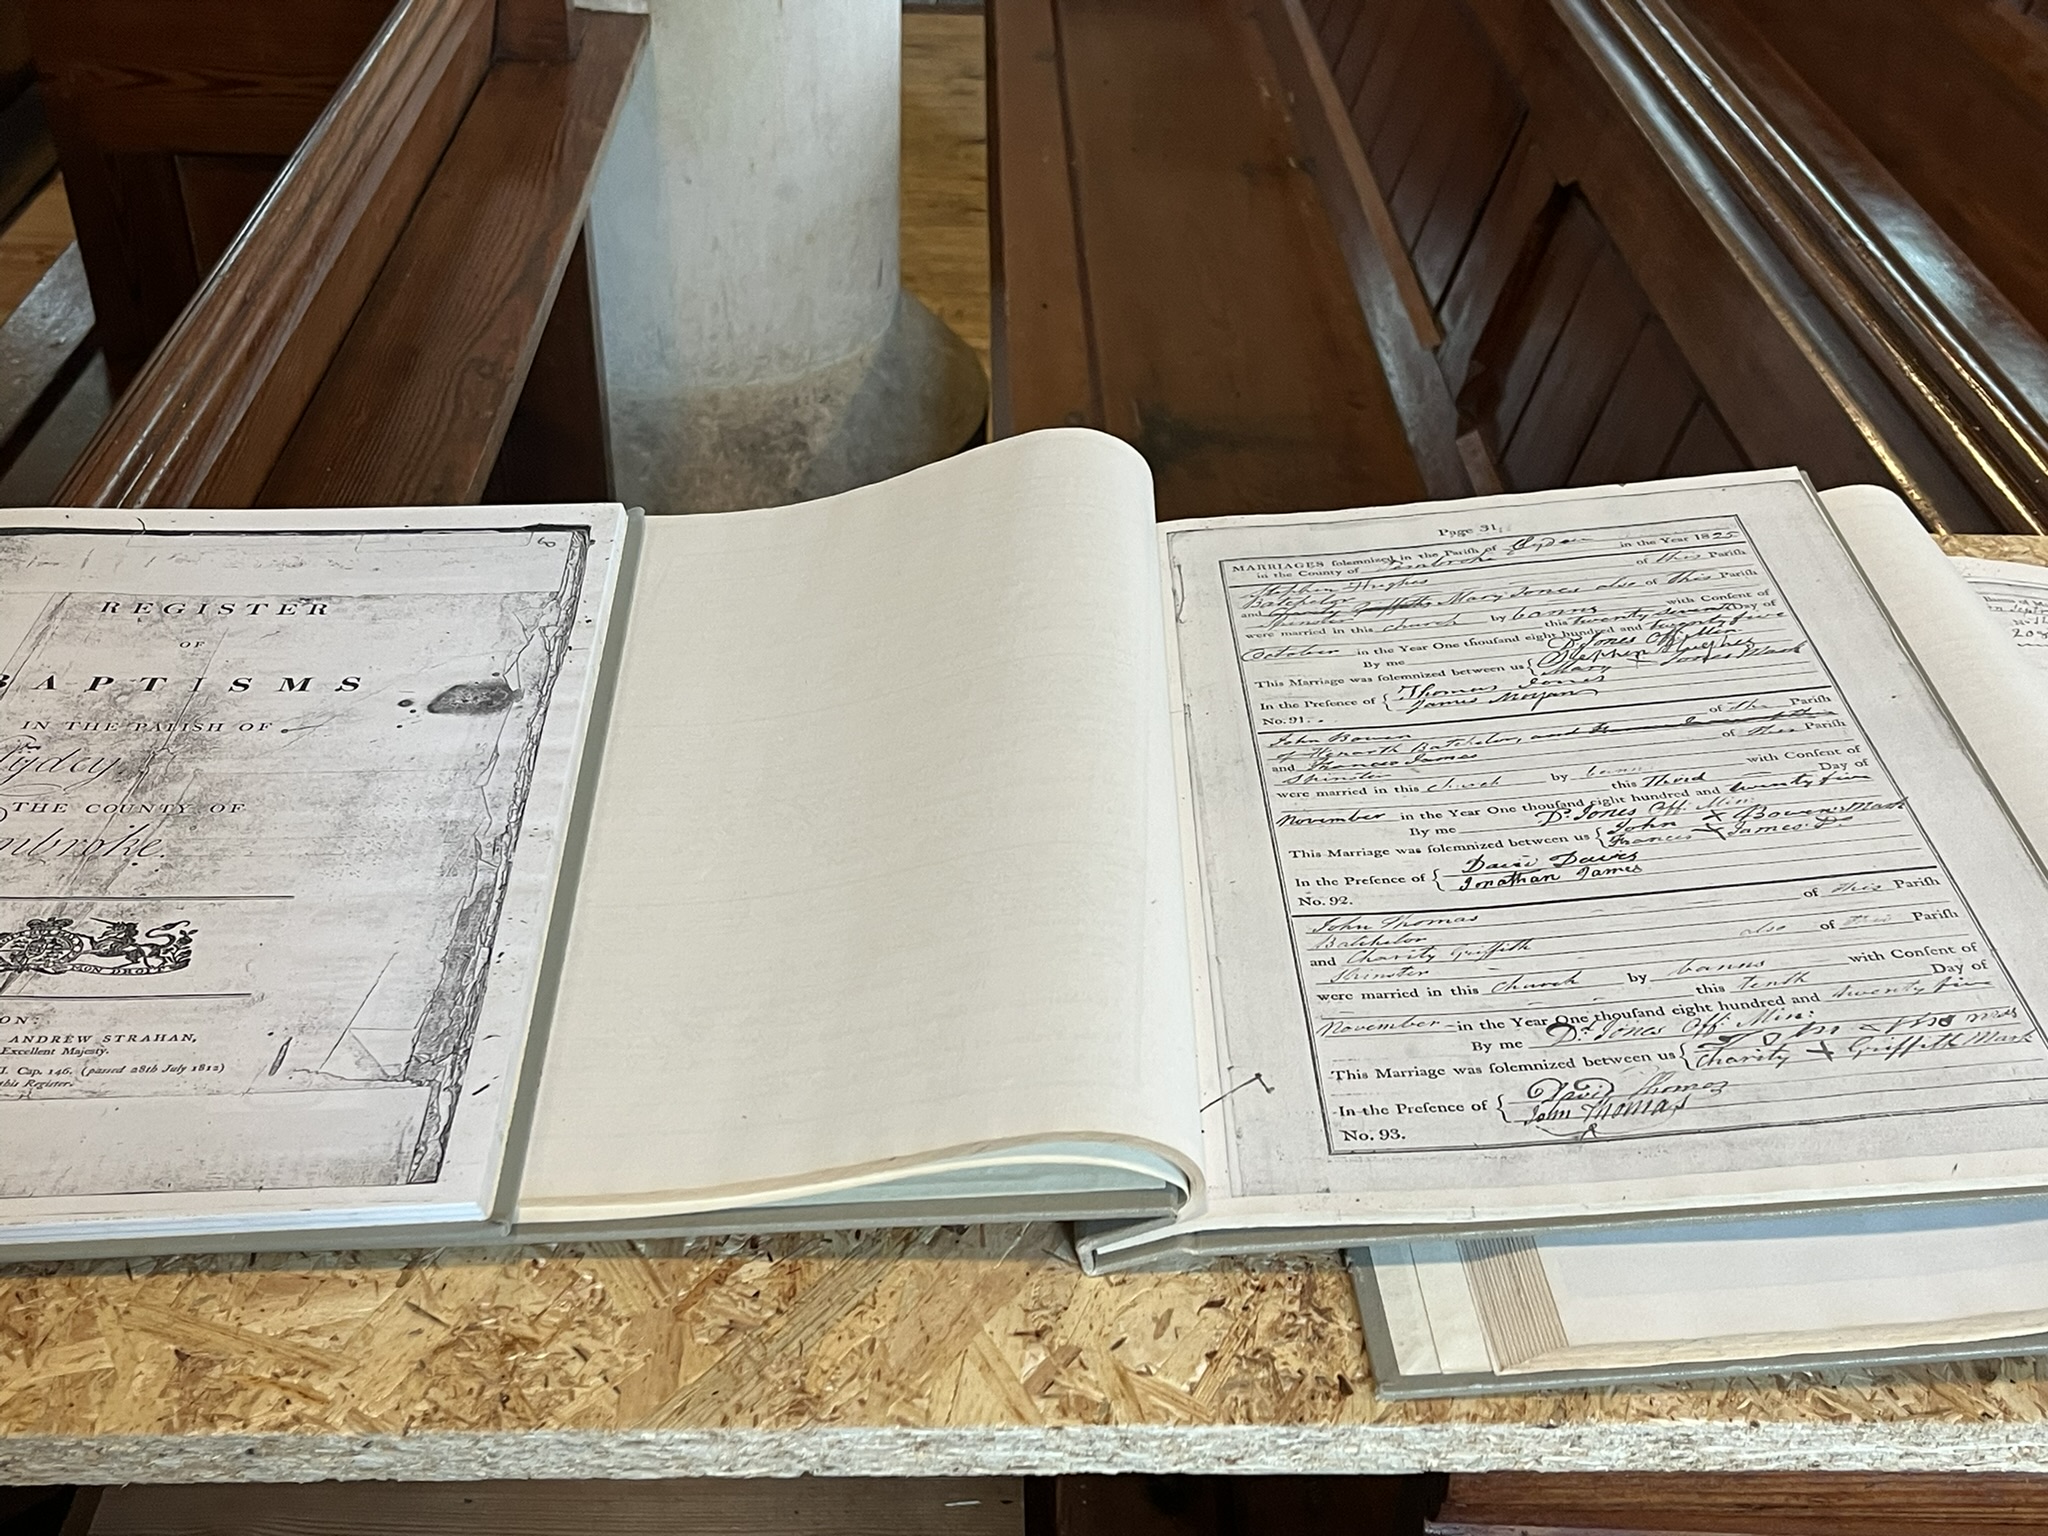 REGISTER
OF
BAPTISMS
IN THE PARISH OF
THE COUNTY OF
MON DROIT
ON:
ANDREW STRAHAN,
Excellent Majesty.
Cap. 146. (passed 28th July 1812)
this Register.
Page 31.
MARRIAGES solemnized in the Parish of Clydey in the Year 1825
in the County of Pembroke
Stephen Hughes of this Parish
Batchelor
and Mary Jones also of this Parish
Spinster
were married in this church by banns with Consent of
this twenty seventh Day of
October in the Year One thousand eight hundred and twenty five
By me D. Jones Off. Min.
This Marriage was solemnized between us { Stephen Hughes
Mary X Jones Mark
In the Presence of { Thomas Jones
James Morgan
No. 91.
John Bowen of the Parish
of Penarth Batchelor, and
and Frances James of this Parish
Spinster
were married in this church by banns with Consent of
this Third Day of
November in the Year One thousand eight hundred and twenty five
By me D. Jones Off. Min:
This Marriage was solemnized between us { John X Bowen Mark
Frances X James Do
In the Presence of { David Davies
Jonathan James
No. 92.
John Thomas of this Parish
Batchelor
and Charity Griffith also of this Parish
Spinster
were married in this church by banns with Consent of
this tenth Day of
November in the Year One thousand eight hundred and twenty five
By me D. Jones Off. Min:
This Marriage was solemnized between us {
Charity X Griffith Mark
In the Presence of { David Thomas
John Thomas
No. 93.